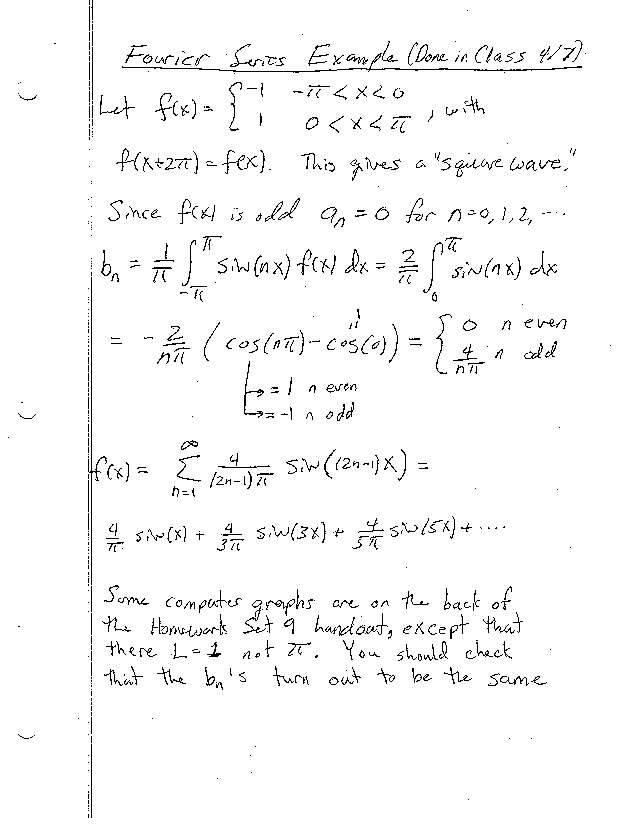 Fourier Series Example (Done in Class 4/7)
Let f(x) = { -1 -π < x < 0
1 0 < x < π , with
f(x+2π) = f(x). This gives a "square wave."
Since f(x) is odd aₙ = 0 for n=0,1,2, ...
bₙ = 1/π ∫_{-π}^{π} sin(nx) f(x) dx = 2/π ∫_0^π sin(nx) dx
1
"
= - 2/nπ ( cos(nπ) - cos(0) ) = { 0 n even
4/nπ n odd
↳ = 1 n even
↳ = -1 n odd
f(x) = ∑_{n=1}^{∞} 4/((2n-1)π) sin((2n-1)x) =
4/π sin(x) + 4/3π sin(3x) + 4/5π sin(5x) + ....
Some computer graphs are on the back of
the Homework Set 9 handout, except that
there L = 1 not π. You should check
that the bₙ's turn out to be the same